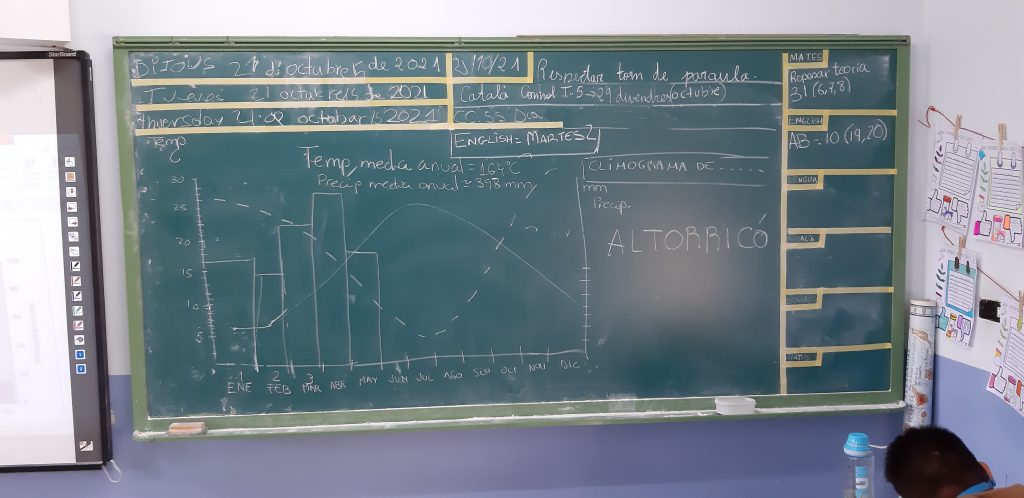 StarBoard
Dijous 21 d'octubre de 2021
Jueves 21 octubre de 2021
Thursday 21 October 2021
21/10/21
Respectar torn de paraula.
Català Control T-5 → 29 divendres (octubre)
CC.SS Dia
ENGLISH = MARTES
MATES
Repasar teoría
31 (6,7,8)
ENGLISH
AB = 10 (19,20)
LENGUA
Temp
C
Temp, media anual = 16,4ºC
Precip media anual = 398 mm
CLIMOGRAMA DE ......
mm
Precip.
ALTORRICÓ
30
25
20
15
10
5
1 2 3
ENE FEB MAR ABR MAY JUN JUL AGO SEP OCT NOV DIC